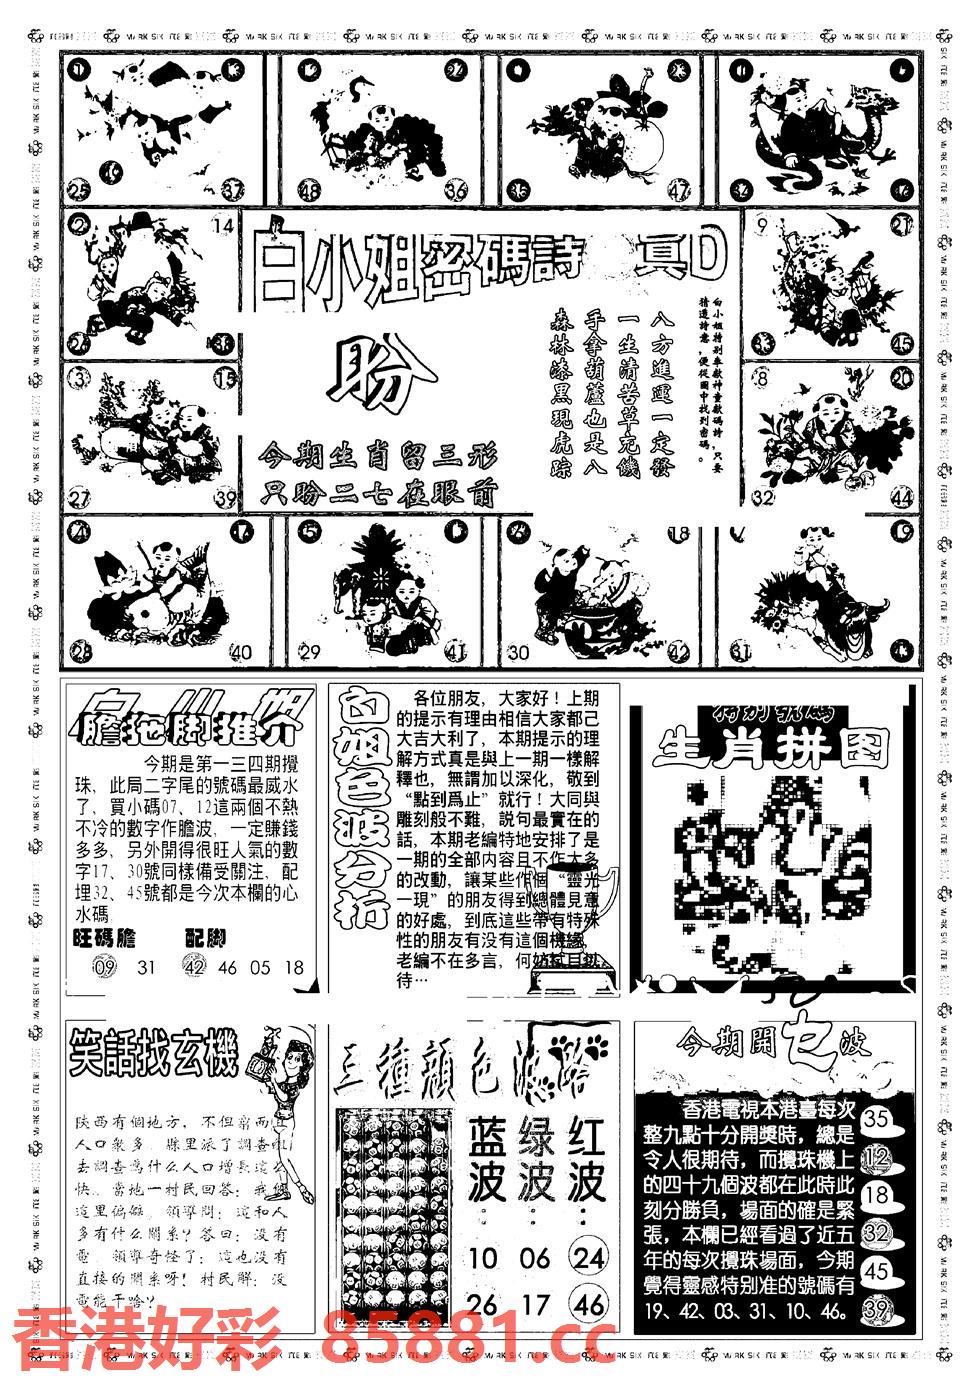 25
37
48
36
35
47
2
14
26
38
3
15
27
39
9
21
33
45
8
20
32
44
白小姐密碼詩 真D
盼
今期生肖留三形
只盼二七在眼前
八方進運一定發
一生清苦草充饑
手拿葫蘆也是八
森林漆黑現虎踪
白小姐特別奉獻神童數碼詩,只要
猜透詩意,便從圖中找到密碼。
4
28
40
5
29
41
6
18
30
42
7
19
31
膽拖脚推介
今期是第一三四期攪
珠，此局二字尾的號碼最威水
了，買小碼07、12這兩個不熱
不冷的數字作膽波，一定賺錢
多多，另外開得很旺人氣的數
字17、30號同樣備受關注，配
埋32、45號都是今次本欄的心
水碼
旺碼膽 配脚
09 31 42 46 05 18
白姐色波分析
各位朋友，大家好！上期
的提示有理由相信大家都己
大吉大利了，本期提示的理
解方式真是與上一期一樣解
釋也，無謂加以深化，敬到
“點到爲止”就行！大同與
雕刻般不難，説句最實在的
話，本期老編特地安排了是
一期的全部内容且不作太多
的改動，讓某些作個“靈光
一現”的朋友得到總體見意
的好處，到底這些帶有特殊
性的朋友有没有這個機緣，
老編不在多言，何妨拭目以
待…
特別號碼
生肖拼图
笑話找玄機
陝西有個地方，不但窮而且
人口衆多，縣里派了調查組
去調查爲什么人口增長這么
快。當地一村民回答：我們
這里偏僻。領導問：這和人
多有什么關系？答曰：没有
電。領導奇怪了：這也没有
直接的關系呀！村民解：没
電能干啥？
三種顔色波路
蓝波：
10
26
绿波：
06
17
红波：
24
46
今期開乜波
香港電視本港臺每次
整九點十分開獎時，總是
令人很期待，而攪珠機上
的四十九個波都在此時此
刻分勝負，場面的確是緊
張，本欄已經看過了近五
年的每次攪珠場面，今期
覺得靈感特别准的號碼有
19、42、03、31、10、46。
35
12
18
32
45
39
香港好彩 85881.cc